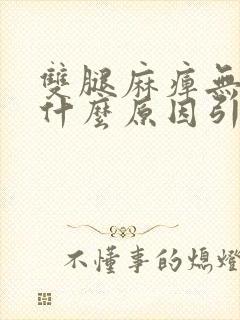 雙腿麻痺無
什麼原因引
不懂事的熄燈